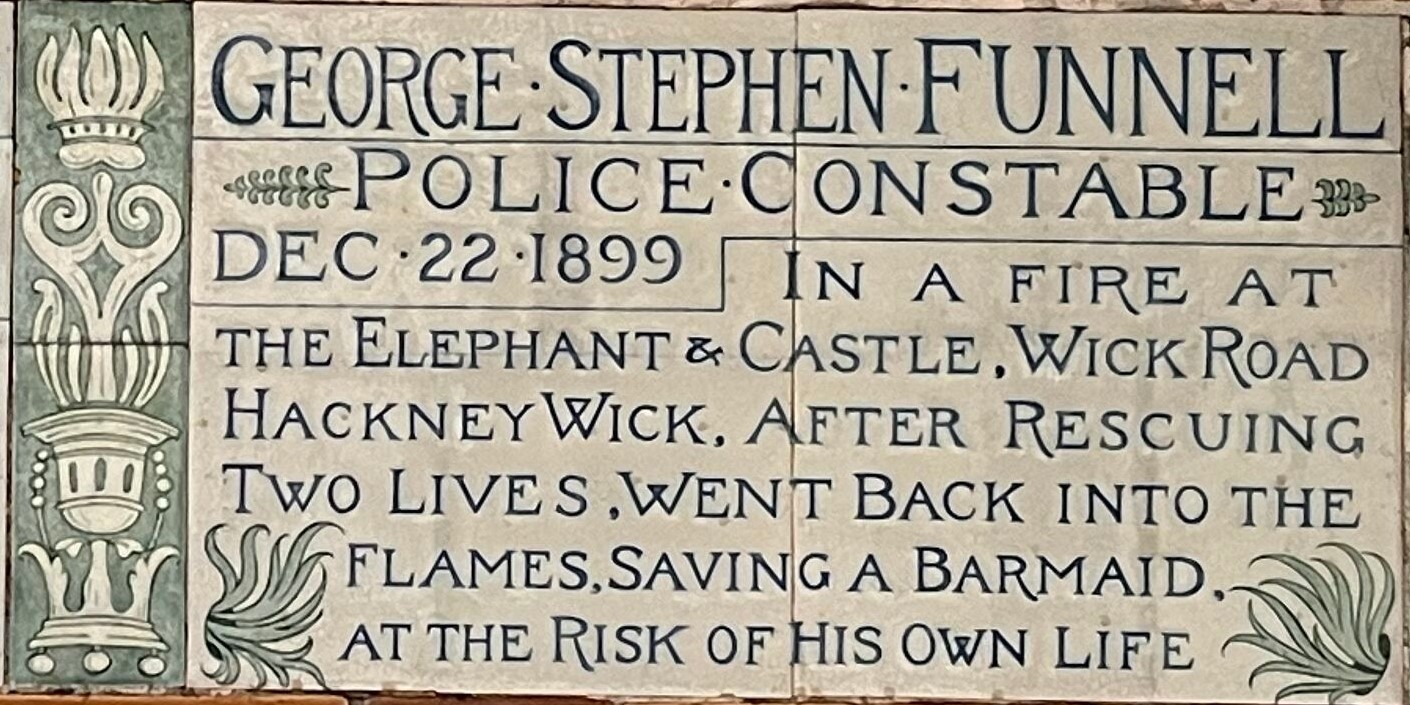 GEORGE·STEPHEN·FUNNELL
POLICE·CONSTABLE
DEC·22·1899
IN A FIRE AT
THE ELEPHANT & CASTLE, WICK ROAD
HACKNEY WICK, AFTER RESCUING
TWO LIVES, WENT BACK INTO THE
FLAMES, SAVING A BARMAID,
AT THE RISK OF HIS OWN LIFE